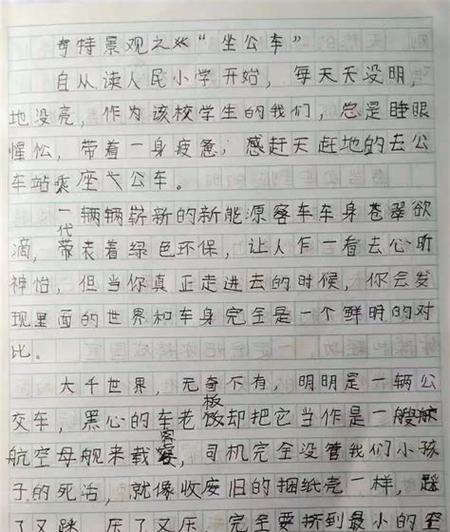 奇特景观之“坐公车”
自从读人民小学开始，每天天没明，
地没亮，作为该校学生的我们，总是睡眼
惺忪，带着一身疲惫，感赶天赶地的去公
车站乘座公车。
一辆辆崭新的新能源客车车身苍翠欲
滴，代表着绿色环保，让人乍一看去心昕
神怡，但当你真正走进去的时候，你会发
现里面的世界和车身完全是一个鲜明的对
比。
大千世界，无奇不有，明明是一辆公
交车，黑心的车老板却把它当作是一艘
航空母舰来载客，司机完全没管我们小孩
子的死活，就像收废旧的捆纸壳一样，踩
了又踩，压了又压，完全要挤到最小的空